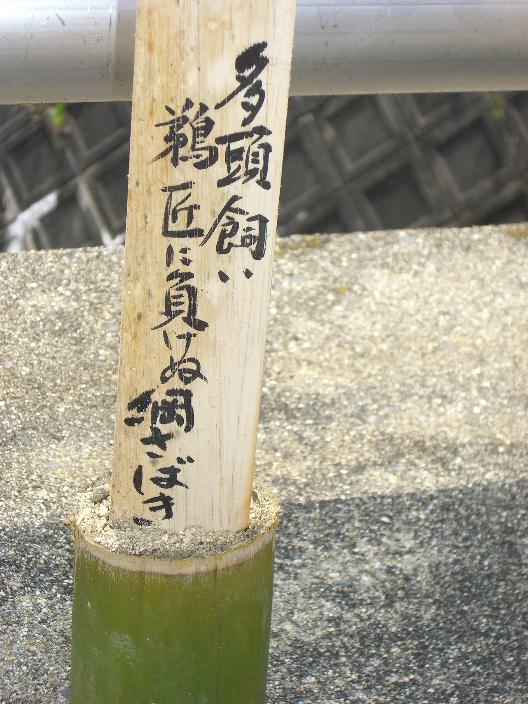 多頭飼い
鵜匠に負けぬ綱さばき